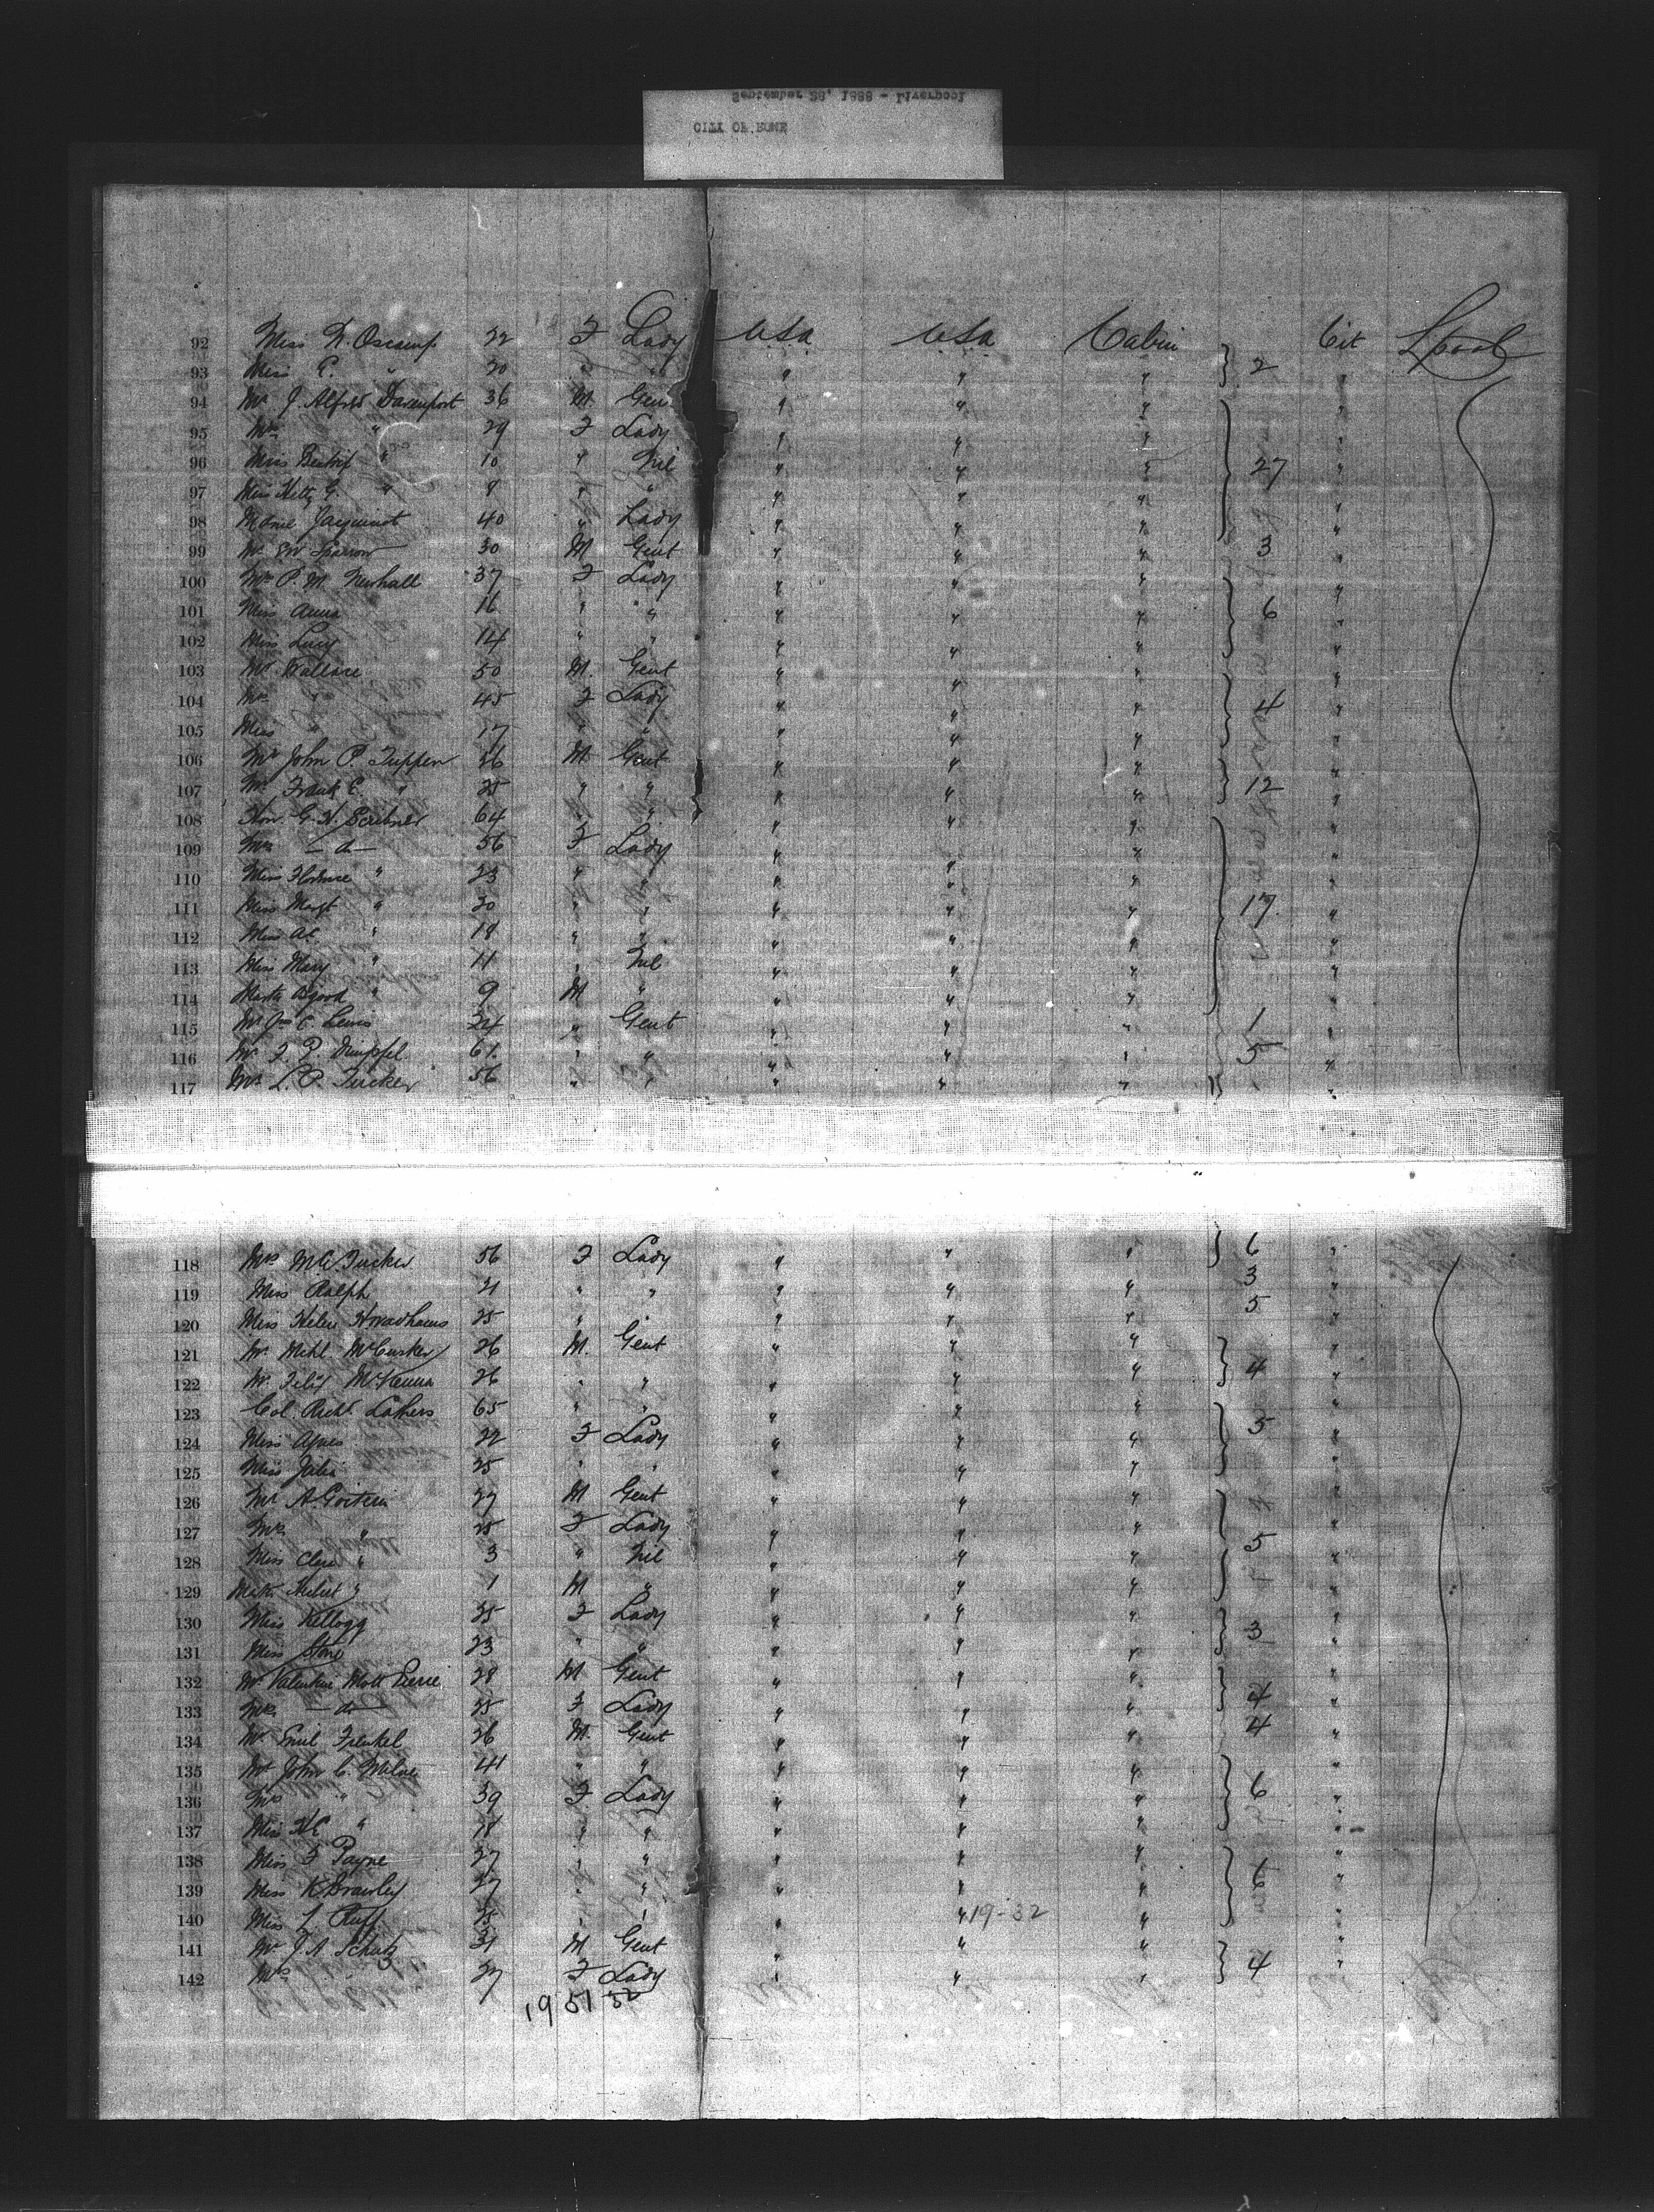 September 28, 1888 - Liverpool
CITY OF ROME
92 Miss N. Oscamp 22 F Lady USA USA Cabin Cit Lpool
93 Miss E. " 20 " " " " " 2 "
94 Mr J. Alfred Davenport 36 M Gen " " " "
95 Mrs " 29 F Lady " " " "
96 Miss " 10 " Nil " " " 27 "
97 Miss Kitty G. " 8 " " " " " "
98 Mdme Jacquinot 40 " Lady " " " "
99 Mr EW Sparrow 30 M Gent " " " 3 "
100 Mrs P. M. Newhall 37 F Lady " " " "
101 Miss Anna 16 " " " " " 6 "
102 Miss Lucy 14 " " " " " "
103 Mr Wallace 50 M. Gent " " " "
104 Mrs " 45 F Lady " " " 4 "
105 Miss " 17 " " " " " "
106 Mr John P. Tuppen 26 M. Gent " " " "
107 Mr Frank E. " 25 " " " " " 12 "
108 Hon. G. H. Scribner 64 " " " " " "
109 Mrs - do - 56 F Lady " " " "
110 Miss Florence " 23 " " " " " "
111 Miss Margt " 20 " " " " " 17 "
112 Miss " 18 " " " " " "
113 Miss Mary " 11 " Nil " " " "
114 Mastr Osgood " 9 M " " " " "
115 Mr Jno C. Lewis 34 " Gent " " " 1 "
116 Mr F. P. Dimpfel 61. " " " " " 5 "
117 Mr L. P. Tucker 56 " " " " " "
118 Mrs M.A. Tucker 56 F Lady " " " 6 "
119 Miss Ralph 21 " " " " " 3 "
120 Miss Helen 25 " " " " " 5 "
121 Mr Michl McCusker 26 M. Gent " " " "
122 Mr Felix McKenna 26 " " " " " 4 "
123 Col. Richd Lathers 65 " " " " " "
124 Miss Agnes 22 F Lady " " " 5 "
125 Miss Julia 25 " " " " " "
126 Mr A Goitein 27 M Gent " " " "
127 Mrs " 25 F Lady " " " 5 "
128 Miss Clara " 3 " Nil " " " "
129 Mastr Hubert " 1 M " " " " "
130 Miss Kellogg 35 F Lady " " " 3 "
131 Miss Stone 23 " " " " " "
132 Mr Valentine Mott 28 M Gent " " " "
133 Mrs - do - 25 F Lady " " " 4 "
134 Mr Emil Frenkel 26 M. Gent " " " 4 "
135 Mr John C. Milne 41 " " " " " "
136 Mrs " 39 F Lady " " " 6 "
137 Miss H.C. " 18 " " " " " "
138 Miss F Payne 27 " " " " " "
139 Miss K Brawley 27 " " " " " 6 "
140 Miss L. Ruff. 25 " " " " 19-32 " "
141 Mr J. A Schutz 31 M Gent " " " "
142 Mrs " 27 F Lady " " " 4 "
19 51 32